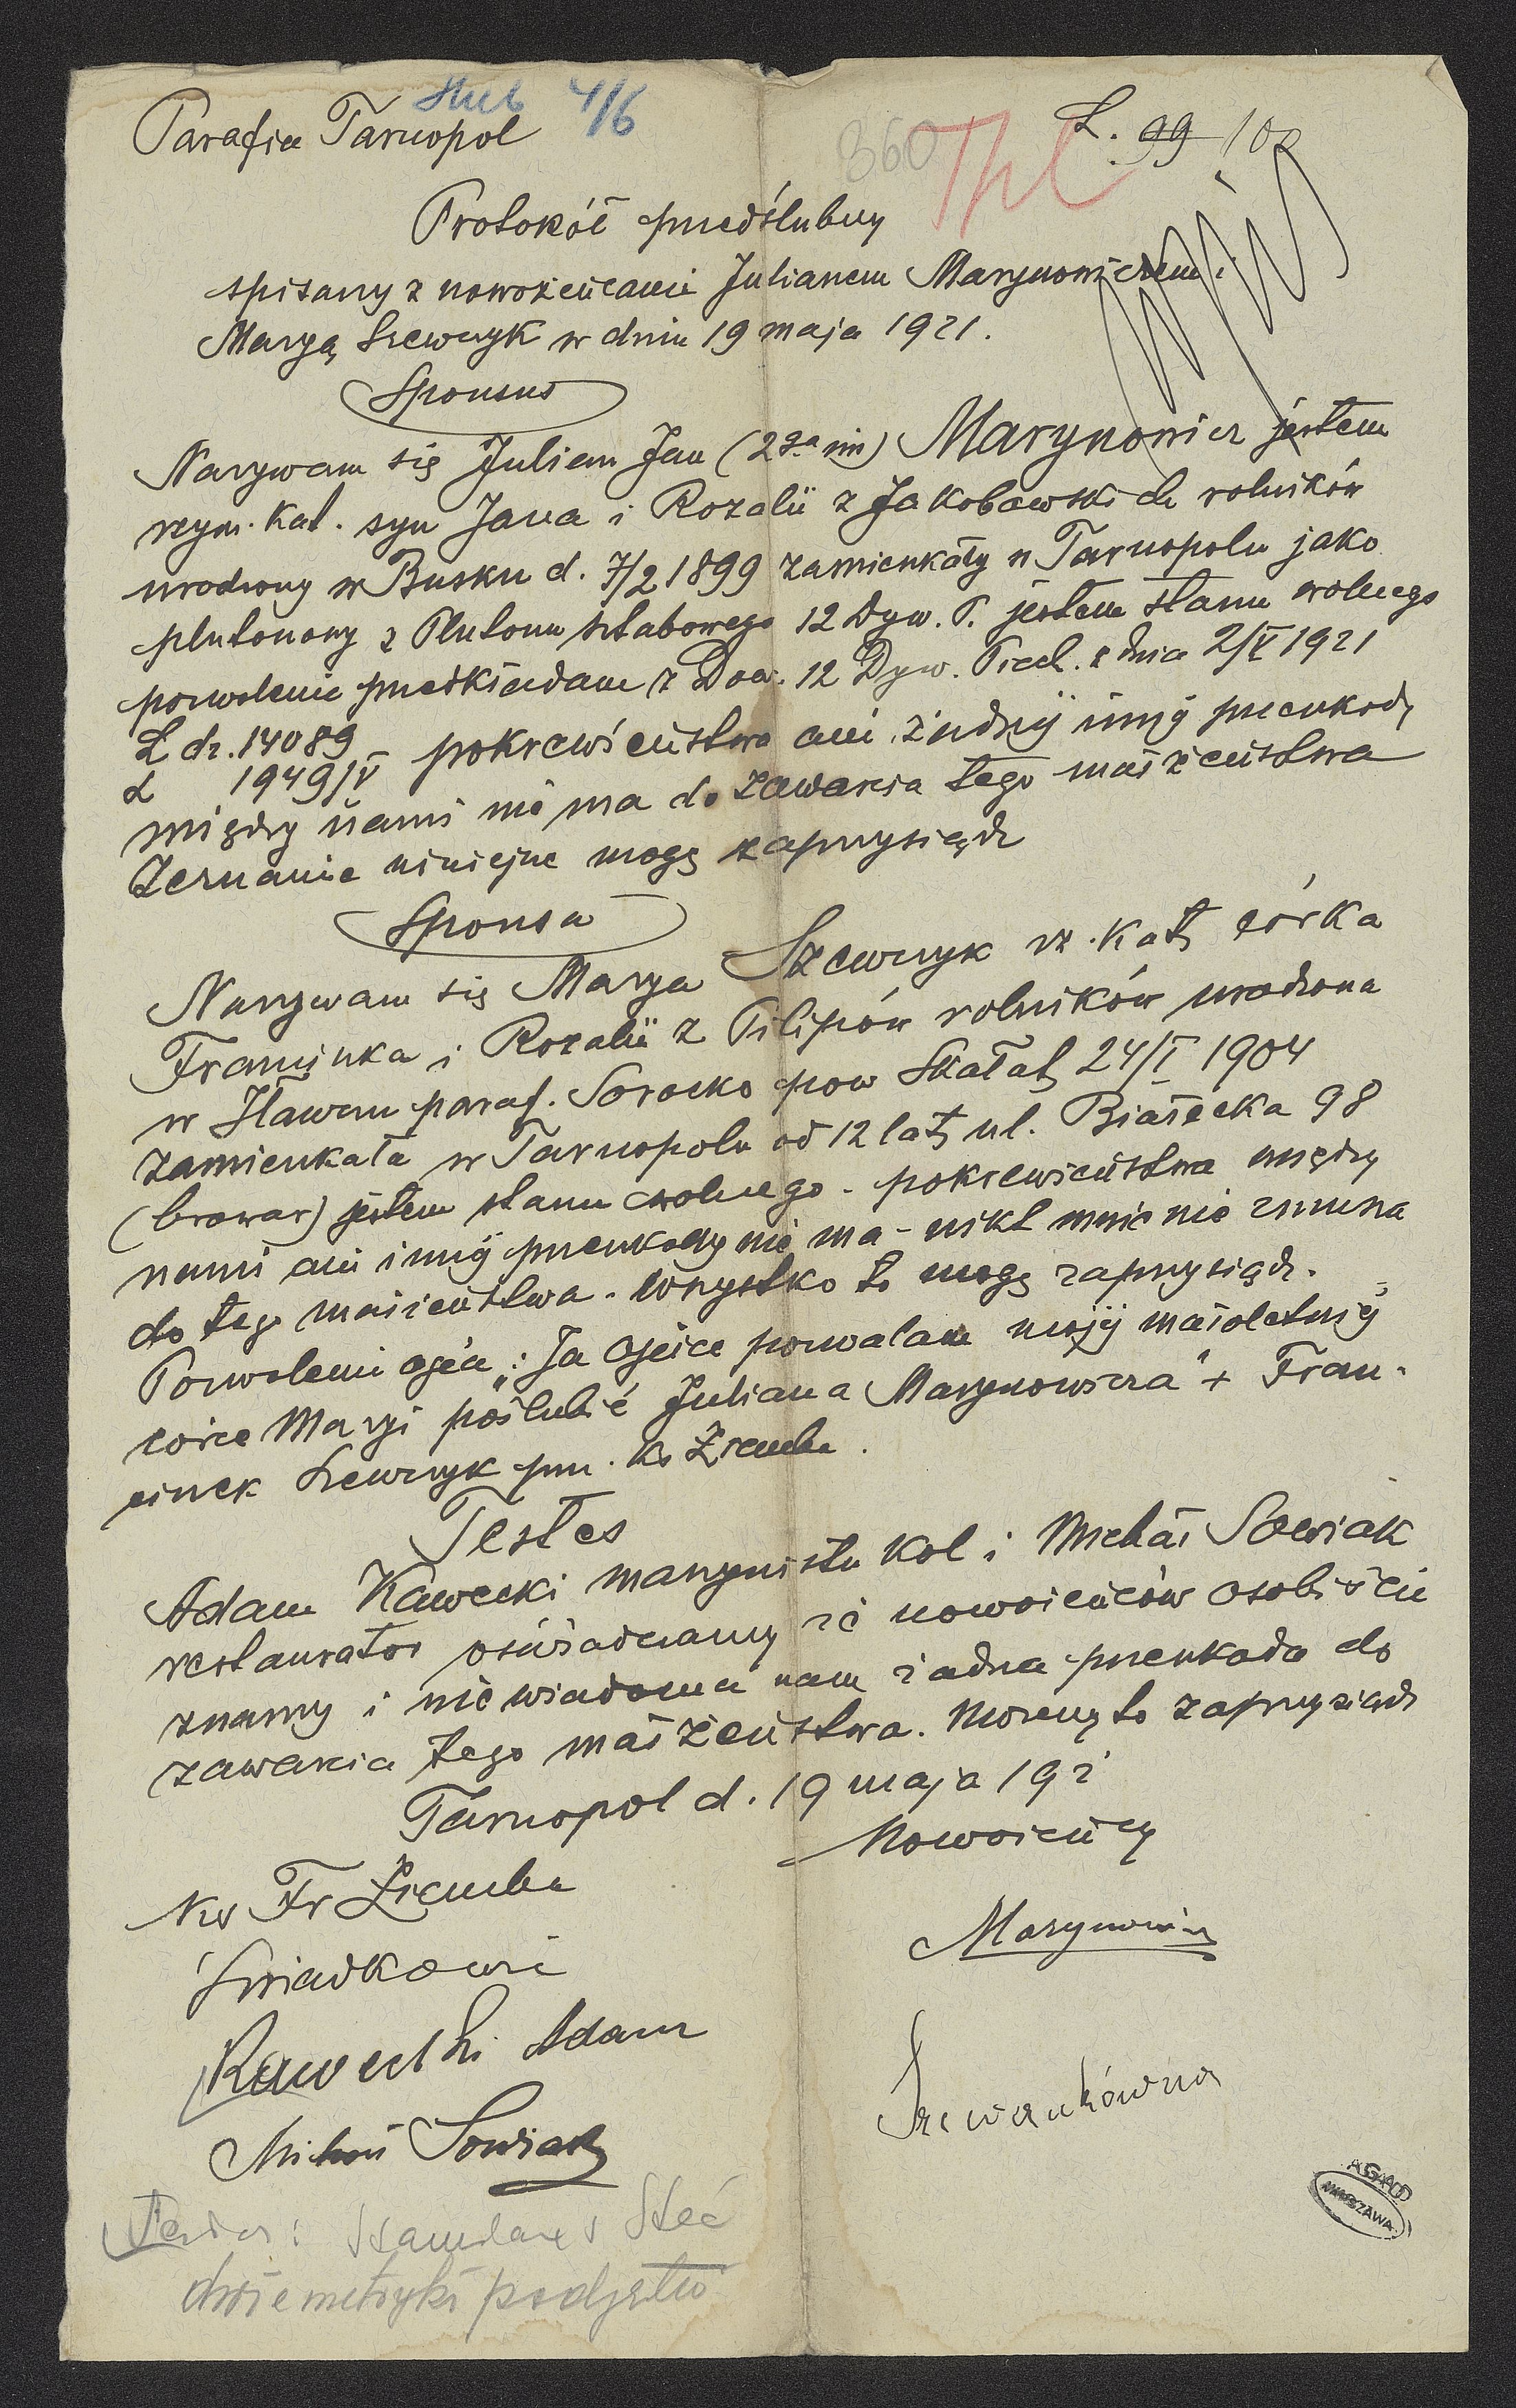 Ślub 4/6
Parafia Tarnopol
360
L. 99 100
Protokół przedślubny
spisany z nowożeńcami Julianem Marynowiczem i
Maryą Szewczyk w dniu 19 maja 1921.
Sponsus
Nazywam się Julian Jan (2ga im) Marynowicz jestem
rzym. kat. syn Jana i Rozalii z Jakobowskich rolników
urodzony w Busku d. 7/2 1899 zamieszkały w Tarnopolu jako
plutonowy z Plutonu sztabowego 12 Dyw. P. jestem stanu wolnego
pozwolenie przedkładam z Dow. 12 Dyw. Piech. z dnia 2/V 1921
L dz. 14089
L 1949/V pokrewieństwa ani żadnej innej przeszkody
między nami nie ma do zawarcia tego małżeństwa
Zeznanie niniejsze mogę zaprzysiądz
Sponsa
Nazywam się Marya Szewczyk rz. kat, córka
Franciszka i Rozalii z Pilipów rolników urodzona
w Iławczu paraf. Sorocko pow Skałat, 24/I 1904
zamieszkała w Tarnopolu od 12 lat, ul. Białecka 98
(browar) jestem stanu wolnego - pokrewieństwa między
nami ani innej przeszkody nie ma - nikt mnie nie zmusza
do tego małżeństwa. Wszystko to mogę zaprzysiądz.
Pozwolenie ojca: "Ja Ojciec pozwalam mojej małoletniej
córce Maryi poślubić Juliana Marynowicza" + Fran-
ciszek Szewczyk prz. Ks Ziemba.
Testes
Adam Kawecki maszynista kol i Michał Sowiak
restaurator oświadczamy że nowożeńców osobiście
znamy i nie wiadoma nam żadna przeszkoda do
zawarcia tego małżeństwa. Możemy to zaprzysiądz
Tarnopol d. 19 maja 192
Nowożeńcy
Ks Fr Ziemba
Marynowicz
Świadkowie
Kawecki Adam
Szewczukówna
Michał Sowiak
Stanisław Steć
dwie metryki podjęto
AGAD
WARSZAWA